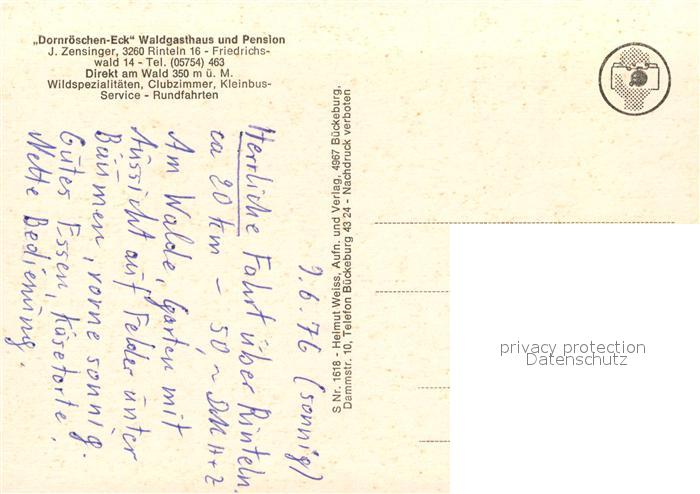 „Dornröschen-Eck“ Waldgasthaus und Pension
J. Zensinger, 3260 Rinteln 16 - Friedrichs-
wald 14 - Tel. (05754) 463
Direkt am Wald 350 m ü. M.
Wildspezialitäten, Clubzimmer, Kleinbus-
Service - Rundfahrten
S Nr. 1618 - Helmut Weiss, Aufn. und Verlag, 4967 Bückeburg,
Dammstr. 10, Telefon Bückeburg 43 24 - Nachdruck verboten
9.6.76 (sonnig)
Herrliche Fahrt über Rinteln.
ca 20 km - 50 ~ DM H+Z
Am Walde, Garten mit
Aussicht auf Felder unter
Bäumen, vorne sonnig.
Gutes Essen, Käsetorte.
Nette Bedienung.
privacy protection
Datenschutz